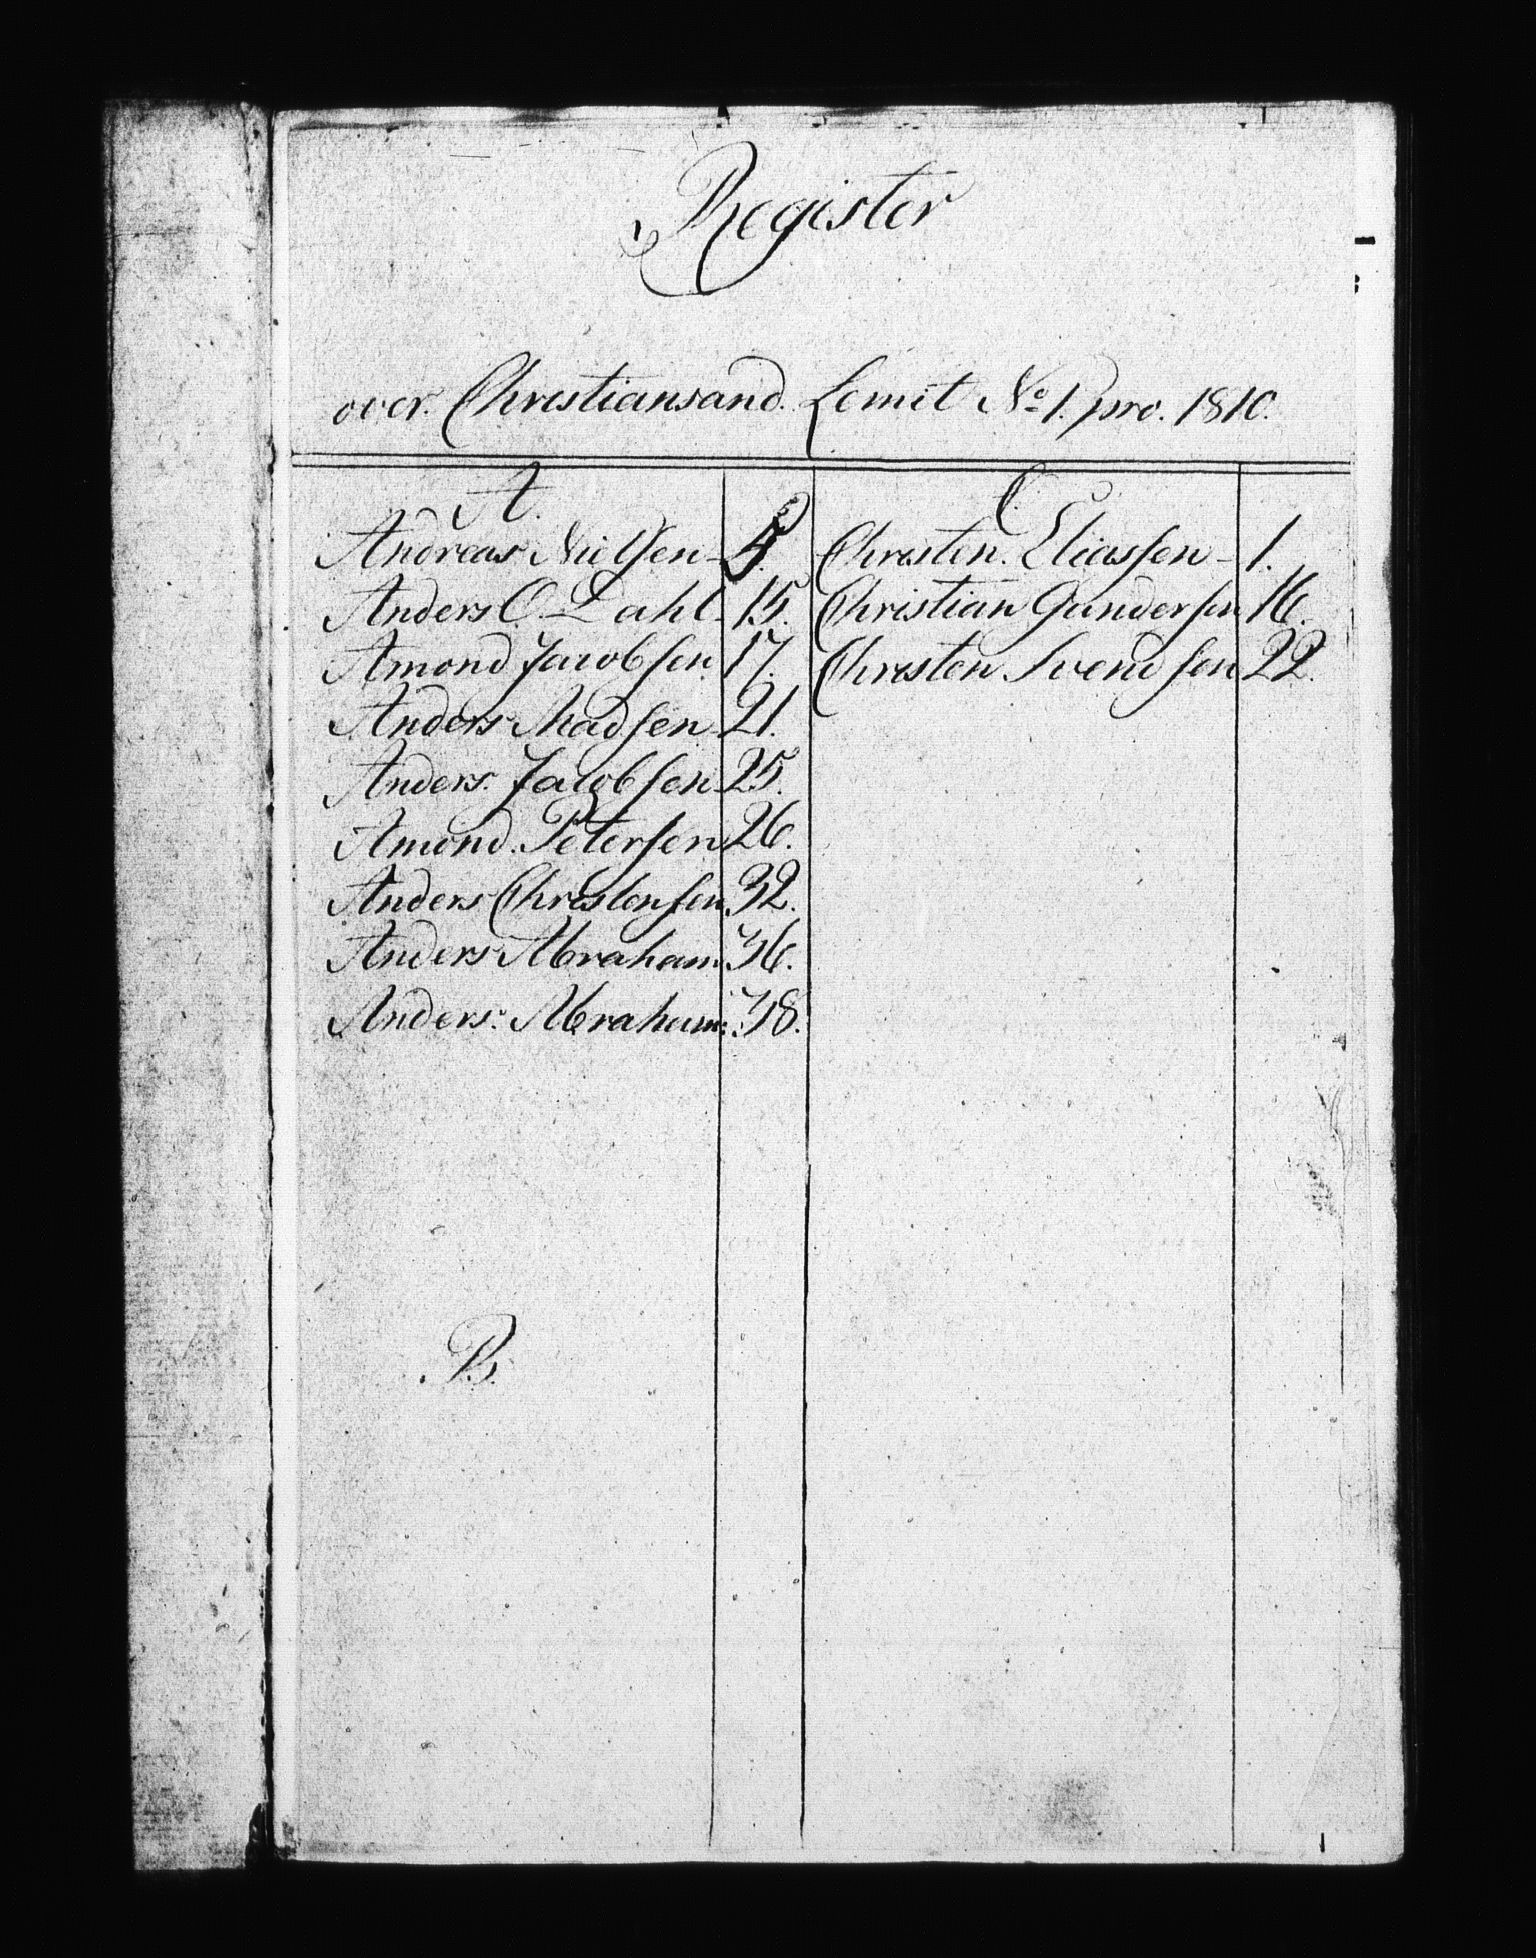 Register
over. Christiansand. Lemit No 1. pro. 1810.
A.
Andreas Nielsen
Anders O. Dahl. 15.
Amond Jacobsen. 17.
Anders Madsen 21.
Anders. Jacobsen 25.
Amond. Petersen 26.
Anders Christensen 32.
Anders Abraham 36.
Anders: Abraham: 38.
B.
C.
Christen. Eliassen 1.
Christian Gundersen 16.
Christen Svendsen 22.